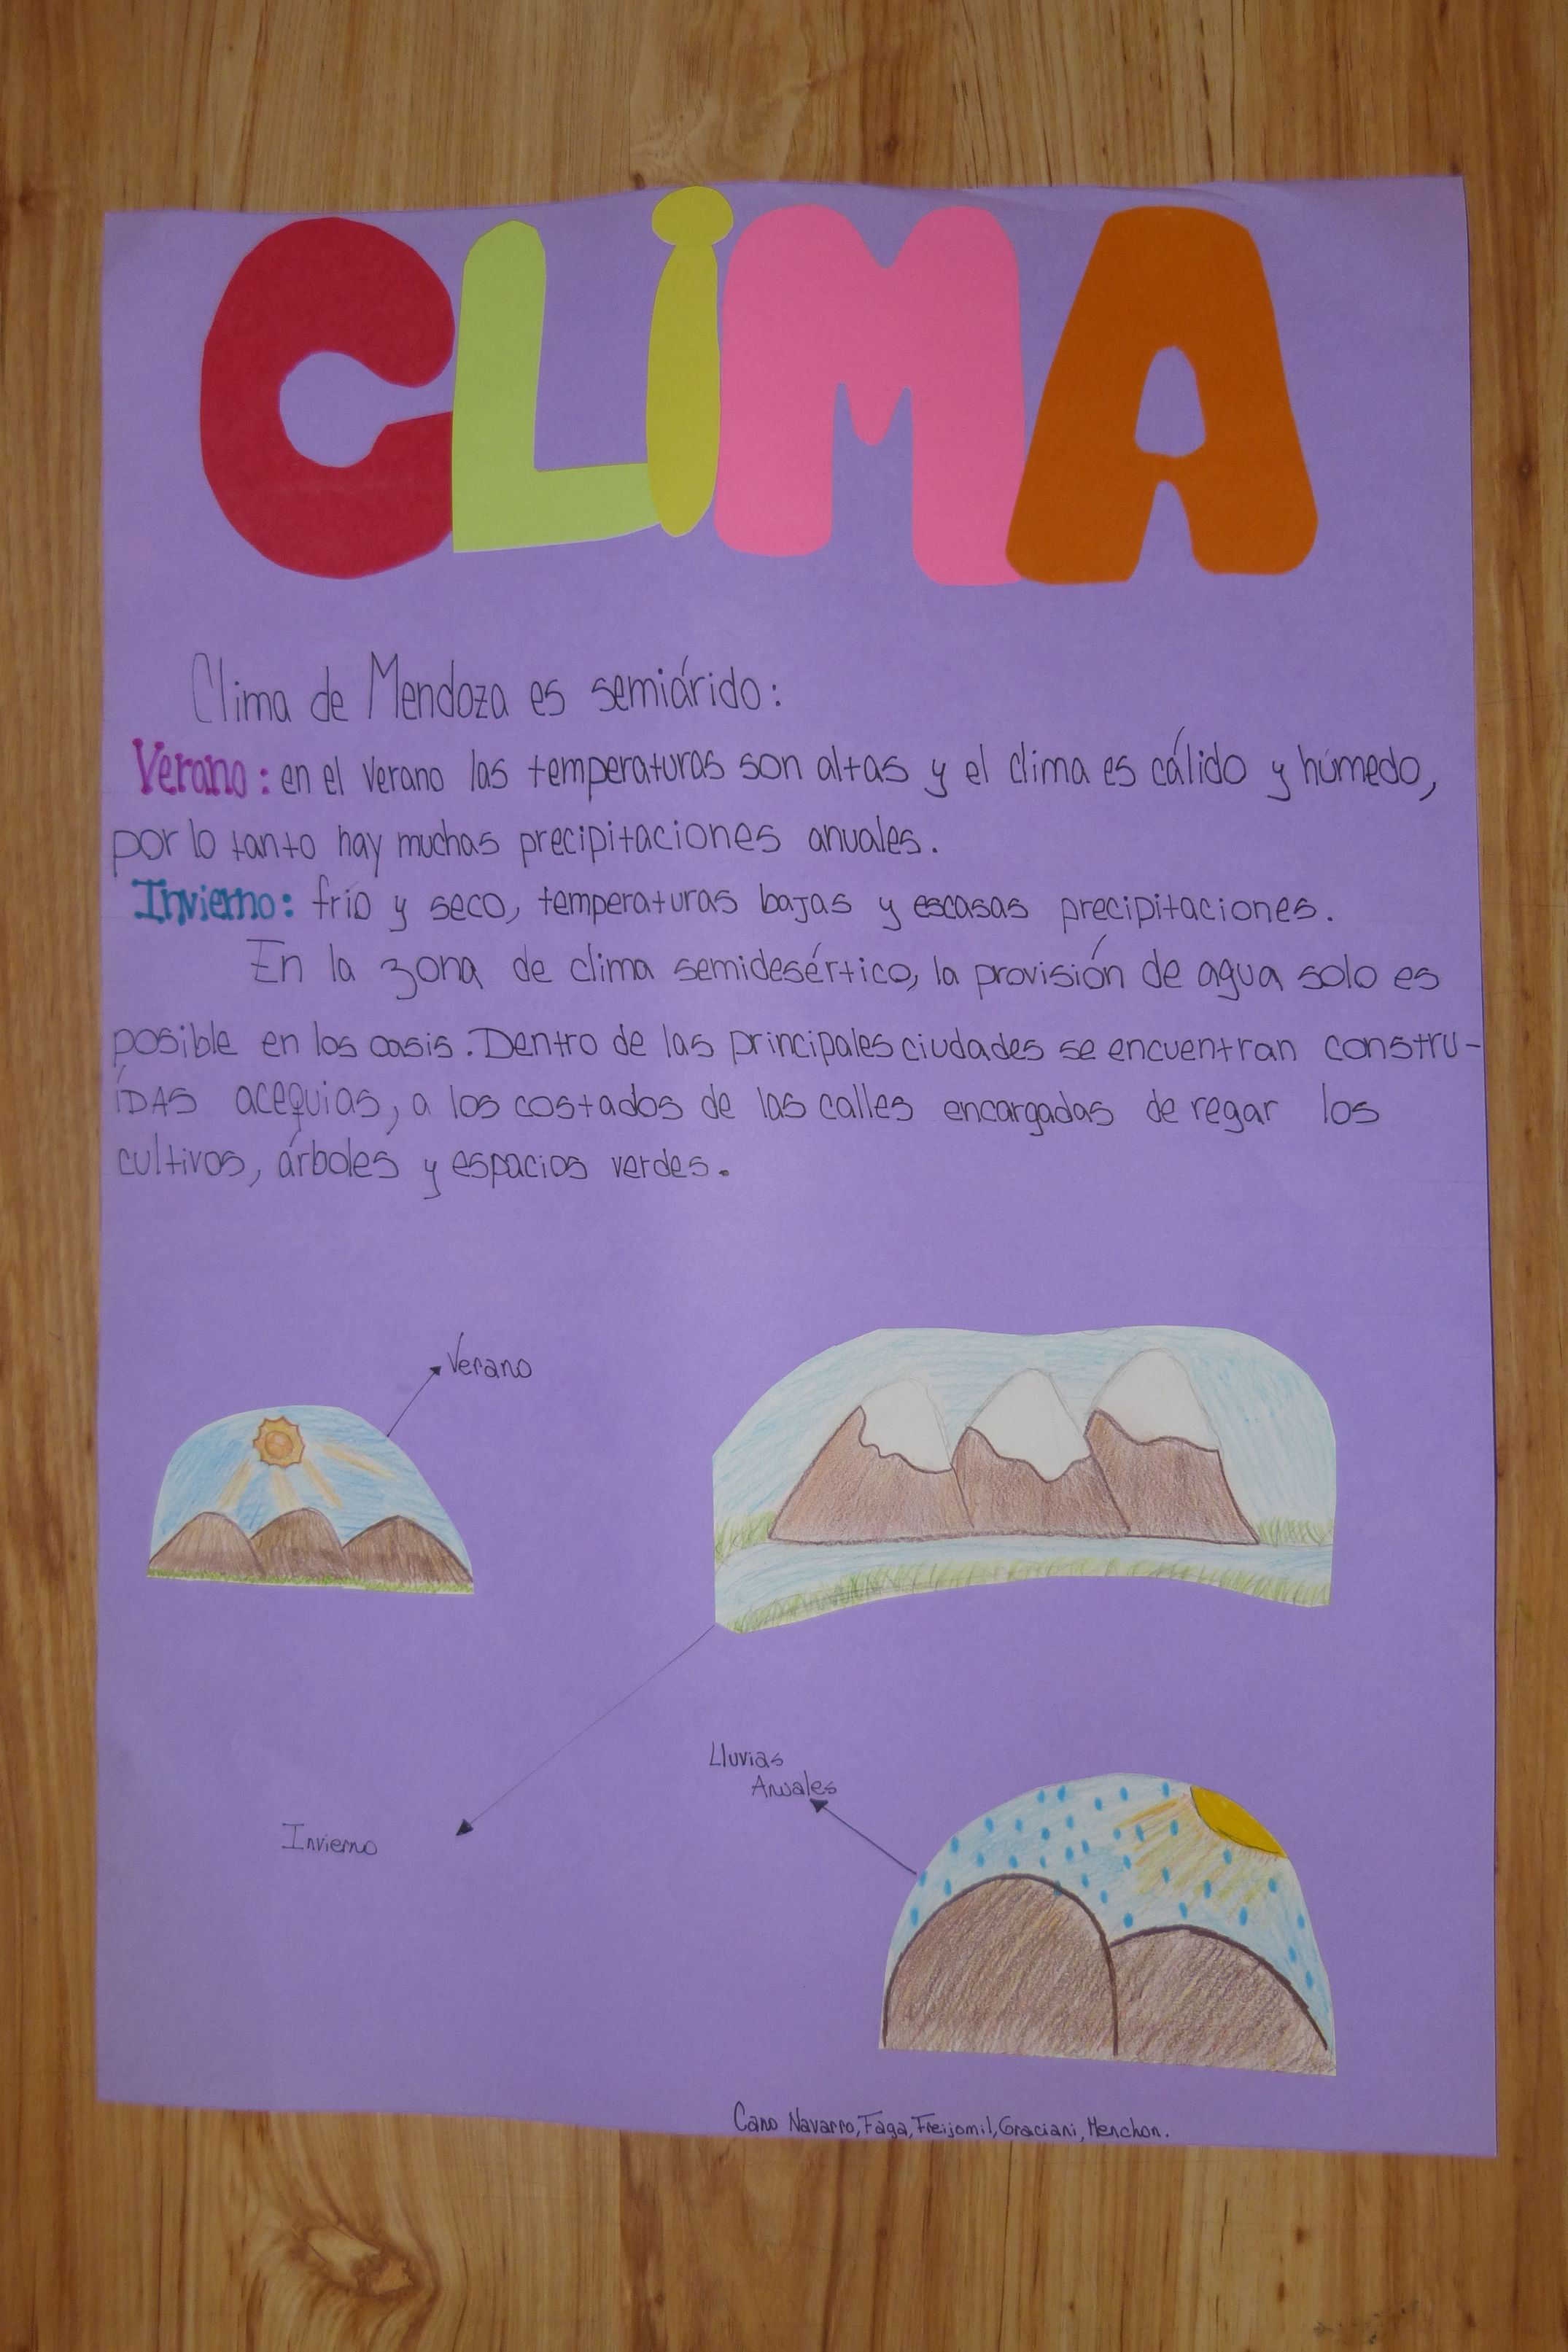 CLiMA
Clima de Mendoza es semiárido:
Verano: en el verano las temperaturas son altas y el clima es cálido y húmedo,
por lo tanto hay muchas precipitaciones anuales.
Invierno: frío y seco, temperaturas bajas y escasas precipitaciones.
En la zona de clima semidesértico, la provisión de agua solo es
posible en los oasis. Dentro de las principales ciudades se encuentran constru-
íDAS acequias, a los costados de las calles encargadas de regar los
cultivos, árboles y espacios verdes.
Verano
Lluvias
Anuales
Invierno
Cano Navarro, Faga, Freijomil, Graciani, Menchon.